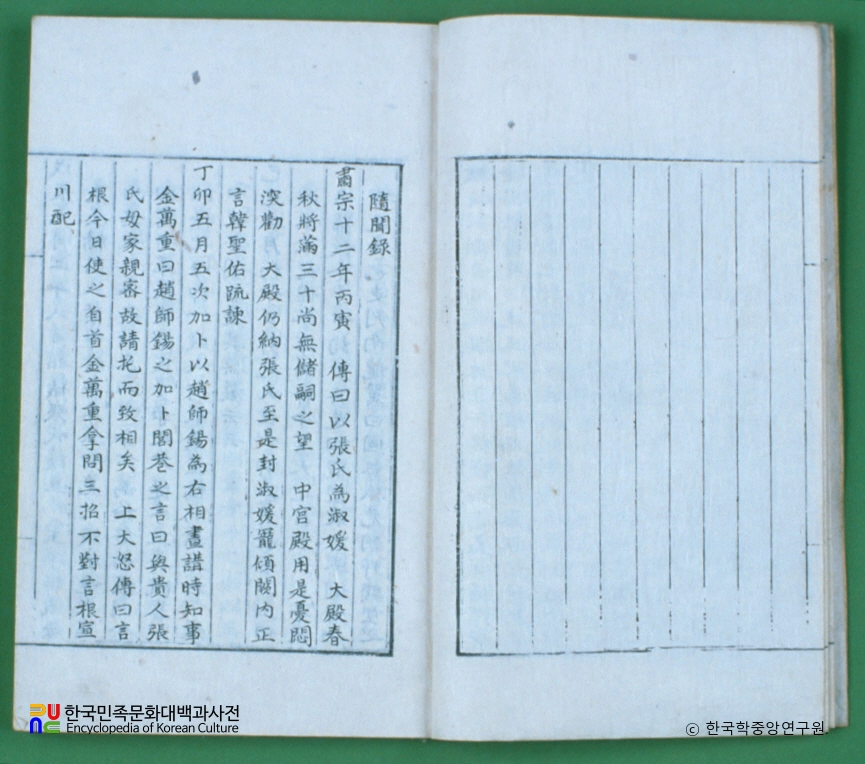 隨聞錄
肅宗十二年丙寅 傳曰以張氏爲淑媛 大殿春
秋將滿三十尙無儲嗣之望 中宮殿用是憂悶
深勸 大殿仍納張氏至是封淑媛寵傾闕內正
言韓聖佑疏諫
丁卯五月五次加卜以趙師錫為右相晝講時知事
金萬重曰趙師錫之加卜閭巷之言曰與貴人張
氏母家親密故請托而致相矣 上大怒傳曰言
根今日使之自首金萬重拿問三招不對言根宣
川配
한국민족문화대백과사전
Encyclopedia of Korean Culture
ⓒ 한국학중앙연구원